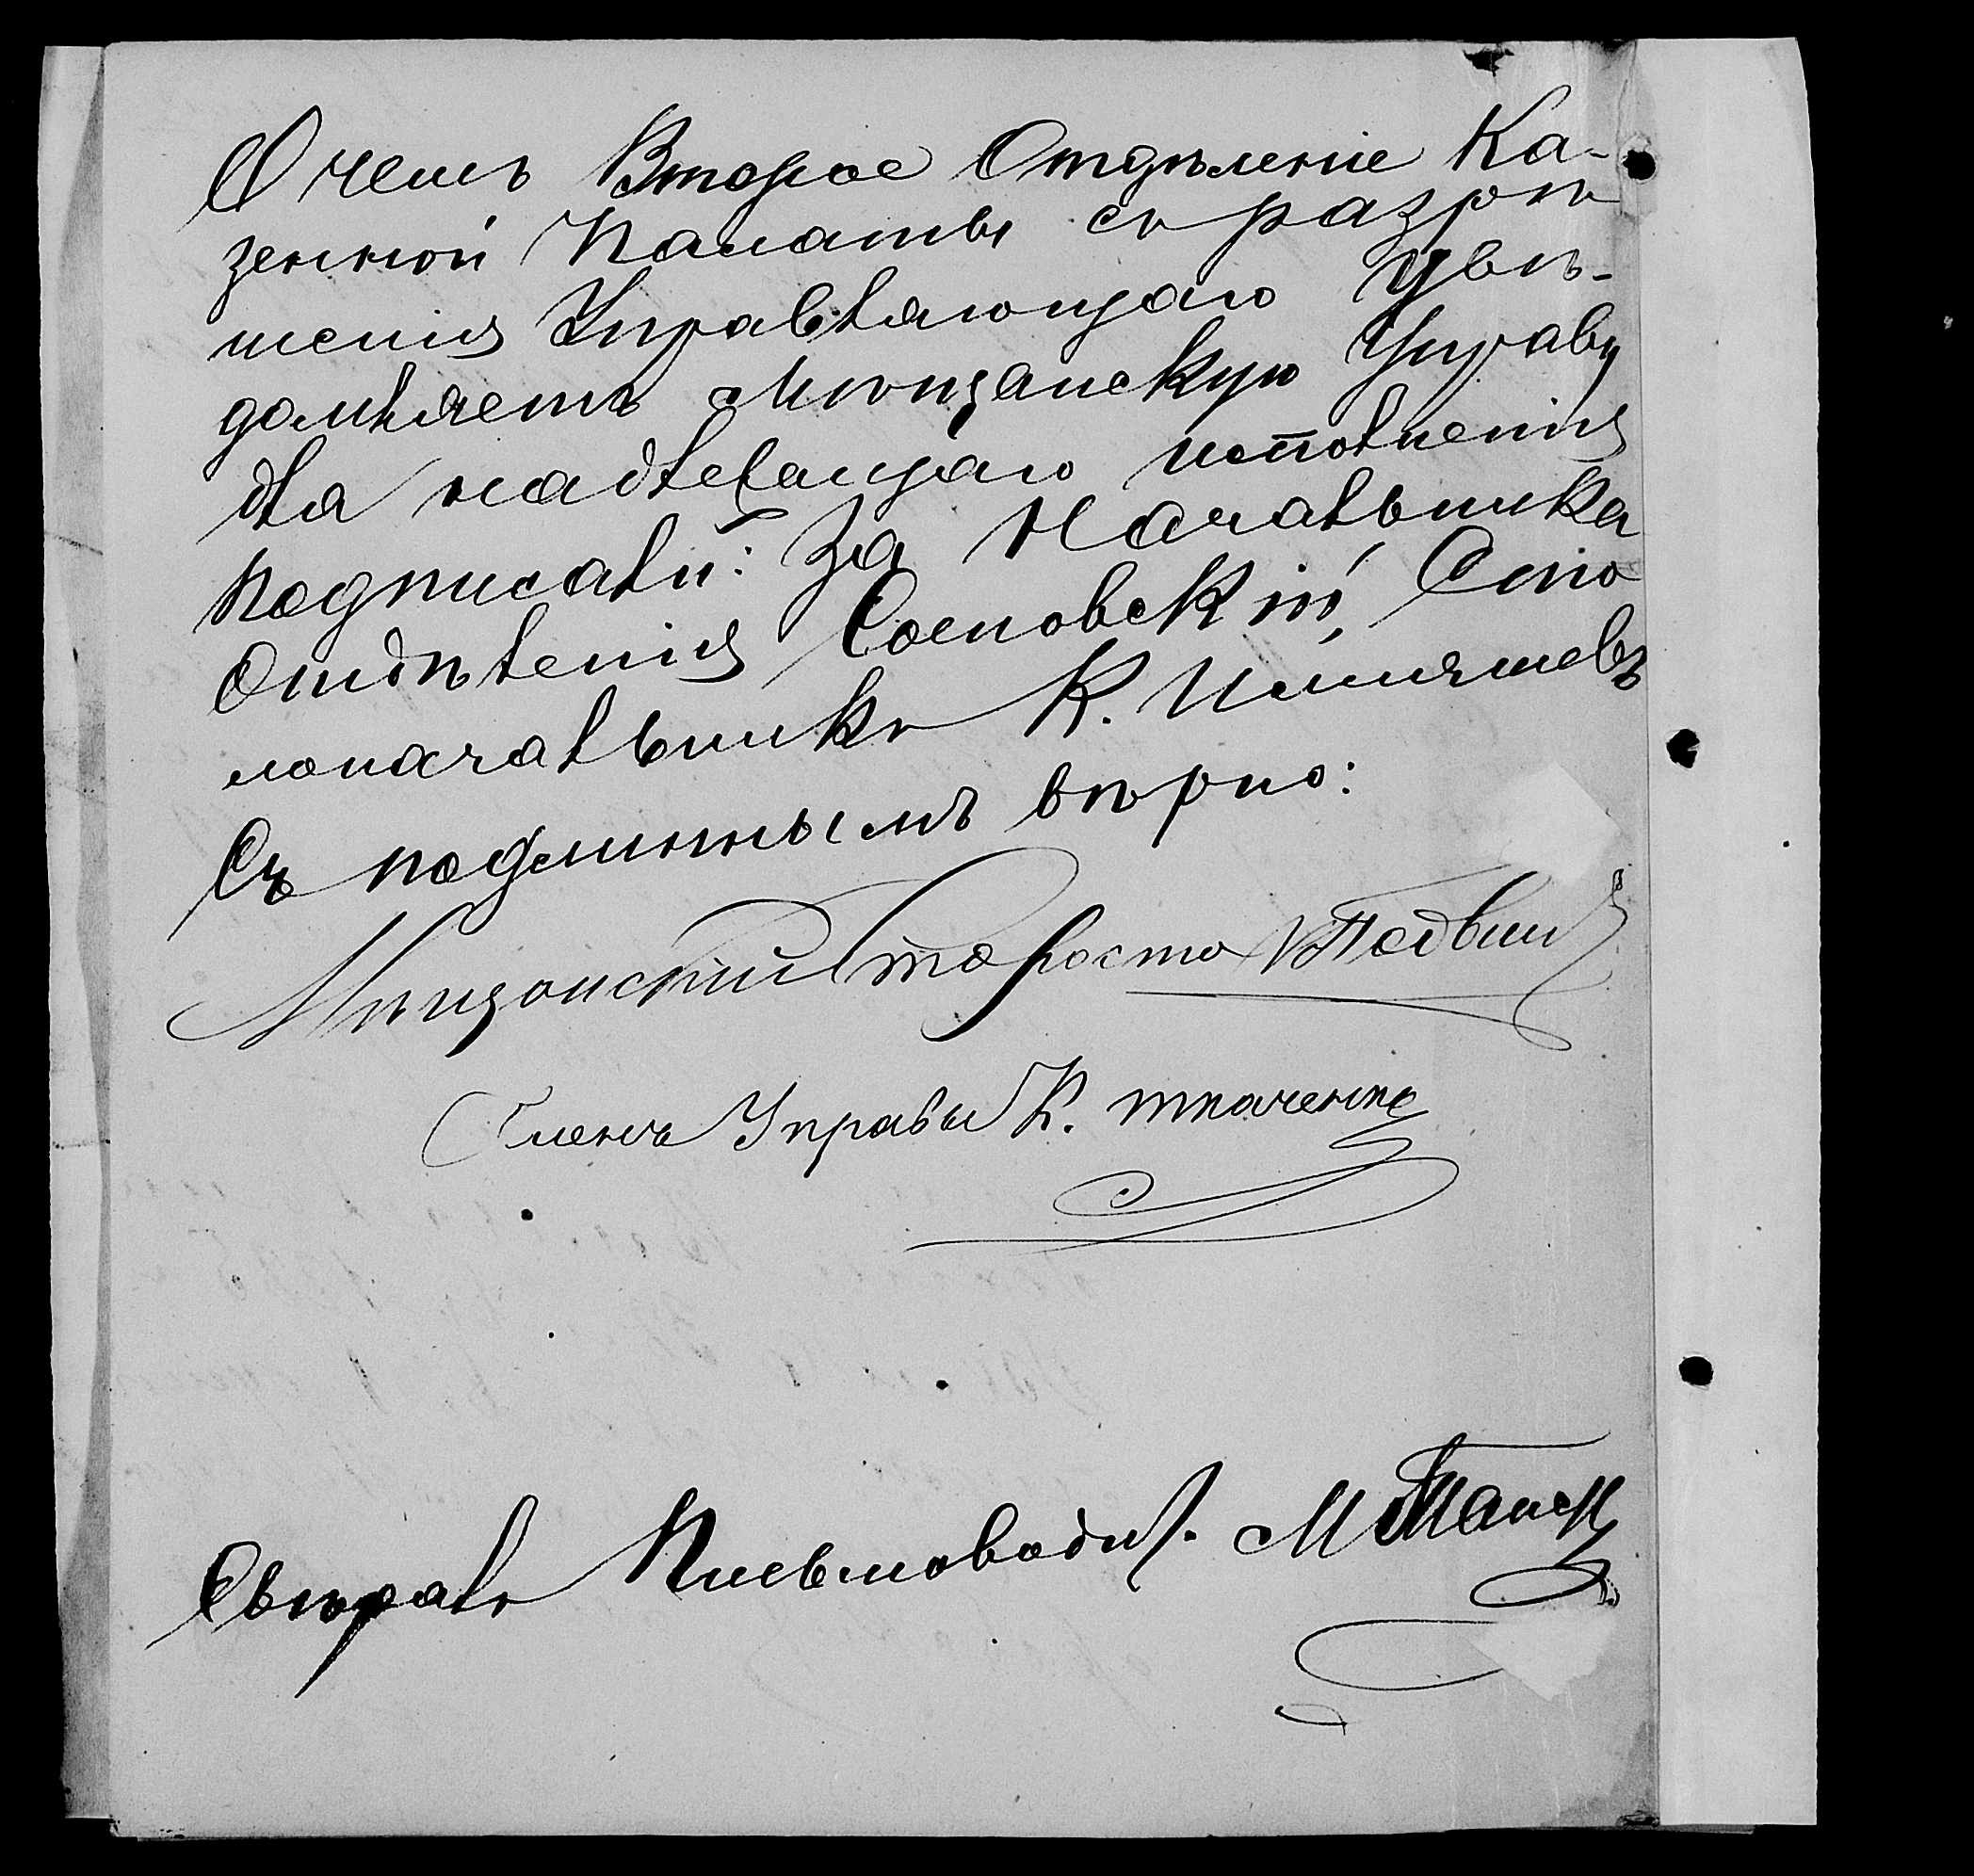 О чемъ Второе Отдѣленіе Ка-
зенной Палаты съ разрѣ
шенія Управляющаго увѣ-
домляетъ Мѣщанскую Управу
для надлежащаго исполненія
подписали: За Начальника
Отдѣленія Сосновскій, Сто
лоначальникъ К.
Съ подлиннымъ вѣрно:
Мѣщанскій Староста
Членъ Управы К. Ткаченко
Свѣрялъ Письмоводит. М